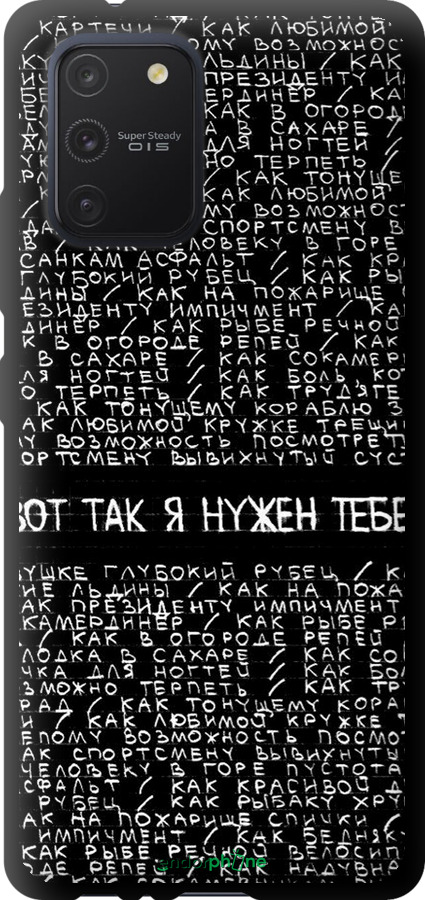 КАРТЕЧИ / КАК ЛЮБИМОЙ
ОМУ ВОЗМОЖНОС
ЛЬДИНЫ / КАК
ПРЕЗИДЕНТУ И
ЕРДИНЕР / КА
КАК В ОГОРОД
А В САХАРЕ /
ДЛЯ НОГТЕЙ /
НО ТЕРПЕТЬ /
КАК ТОНУЩЕ
Super Steady
OIS
КАК ЛЮБИМОЙ
ОМУ ВОЗМОЖНОС
СПОРТСМЕНУ В
ЧЕЛОВЕКУ В ГОРЕ
САНКАМ АСФАЛЬТ / КАК КР
ГЛУБОКИЙ РУБЕЦ / КАК РЫ
ДИНЫ / КАК НА ПОЖАРИЩЕ С
ЕЗИДЕНТУ ИМПИЧМЕНТ / КА
ДИНЕР / КАК РЫБЕ РЕЧНОЙ
К В ОГОРОДЕ РЕПЕЙ / КАК
В САХАРЕ / КАК СОКАМЕР
ЛЯ НОГТЕЙ / КАК БОЛЬ, КО
О ТЕРПЕТЬ / КАК ТРУДЯГЕ
КАК ТОНУЩЕМУ КОРАБЛЮ З
АК ЛЮБИМОЙ КРУЖКЕ ТРЕЩИ
У ВОЗМОЖНОСТЬ ПОСМОТРЕТ
ОРТСМЕНУ ВЫВИХНУТЫЙ СУС
ВОТ ТАК Я НУЖЕН ТЕБЕ
УШКЕ ГЛУБОКИЙ РУБЕЦ / К
ИЕ ЛЬДИНЫ / КАК НА ПОЖА
АК ПРЕЗИДЕНТУ ИМПИЧМЕНТ
КАМЕРДИНЕР / КАК РЫБЕ Р
/ КАК В ОГОРОДЕ РЕПЕЙ
ЛОДКА В САХАРЕ / КАК СО
ЧКА ДЛЯ НОГТЕЙ / КАК БО
ЗМОЖНО ТЕРПЕТЬ / КАК ТР
РАД / КАК ТОНУЩЕМУ КОРА
И / КАК ЛЮБИМОЙ КРУЖКЕ Т
ЕПОМУ ВОЗМОЖНОСТЬ ПОСМО
АК СПОРТСМЕНУ ВЫВИХНУТЫ
ЧЕЛОВЕКУ В ГОРЕ ПУСТОТА
СФАЛЬТ / КАК КРАСИВОЙ Д
РУБЕЦ / КАК РЫБАКУ ХРУ
АК НА ПОЖАРИЩЕ СПИЧКИ /
ИМПИЧМЕНТ / КАК БЕДНЯК
КАК РЫБЕ РЕЧНОЙ ВЕЛОСИП
endorphone
ДЕ РЕПЕЙ / КАК НАДУВНА